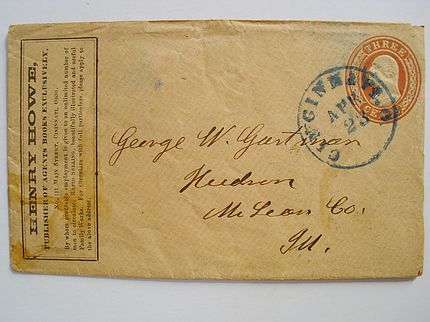 HENRY HOWE,
PUBLISHER OF AGENTS BOOKS EXCLUSIVELY,
No. 111 Main Street, Cincinnati, Ohio.
By whom profitable employment is given to an unlimited number of
men to circulate, Rapid Selling, beautifully illustrated and useful
Family Works. For Circulars with full particulars, please apply to
the above address.
THREE
CENTS
CINCINNATI O.
APR
23
George W. Gastman
Hudson
McLean Co.
Ill.